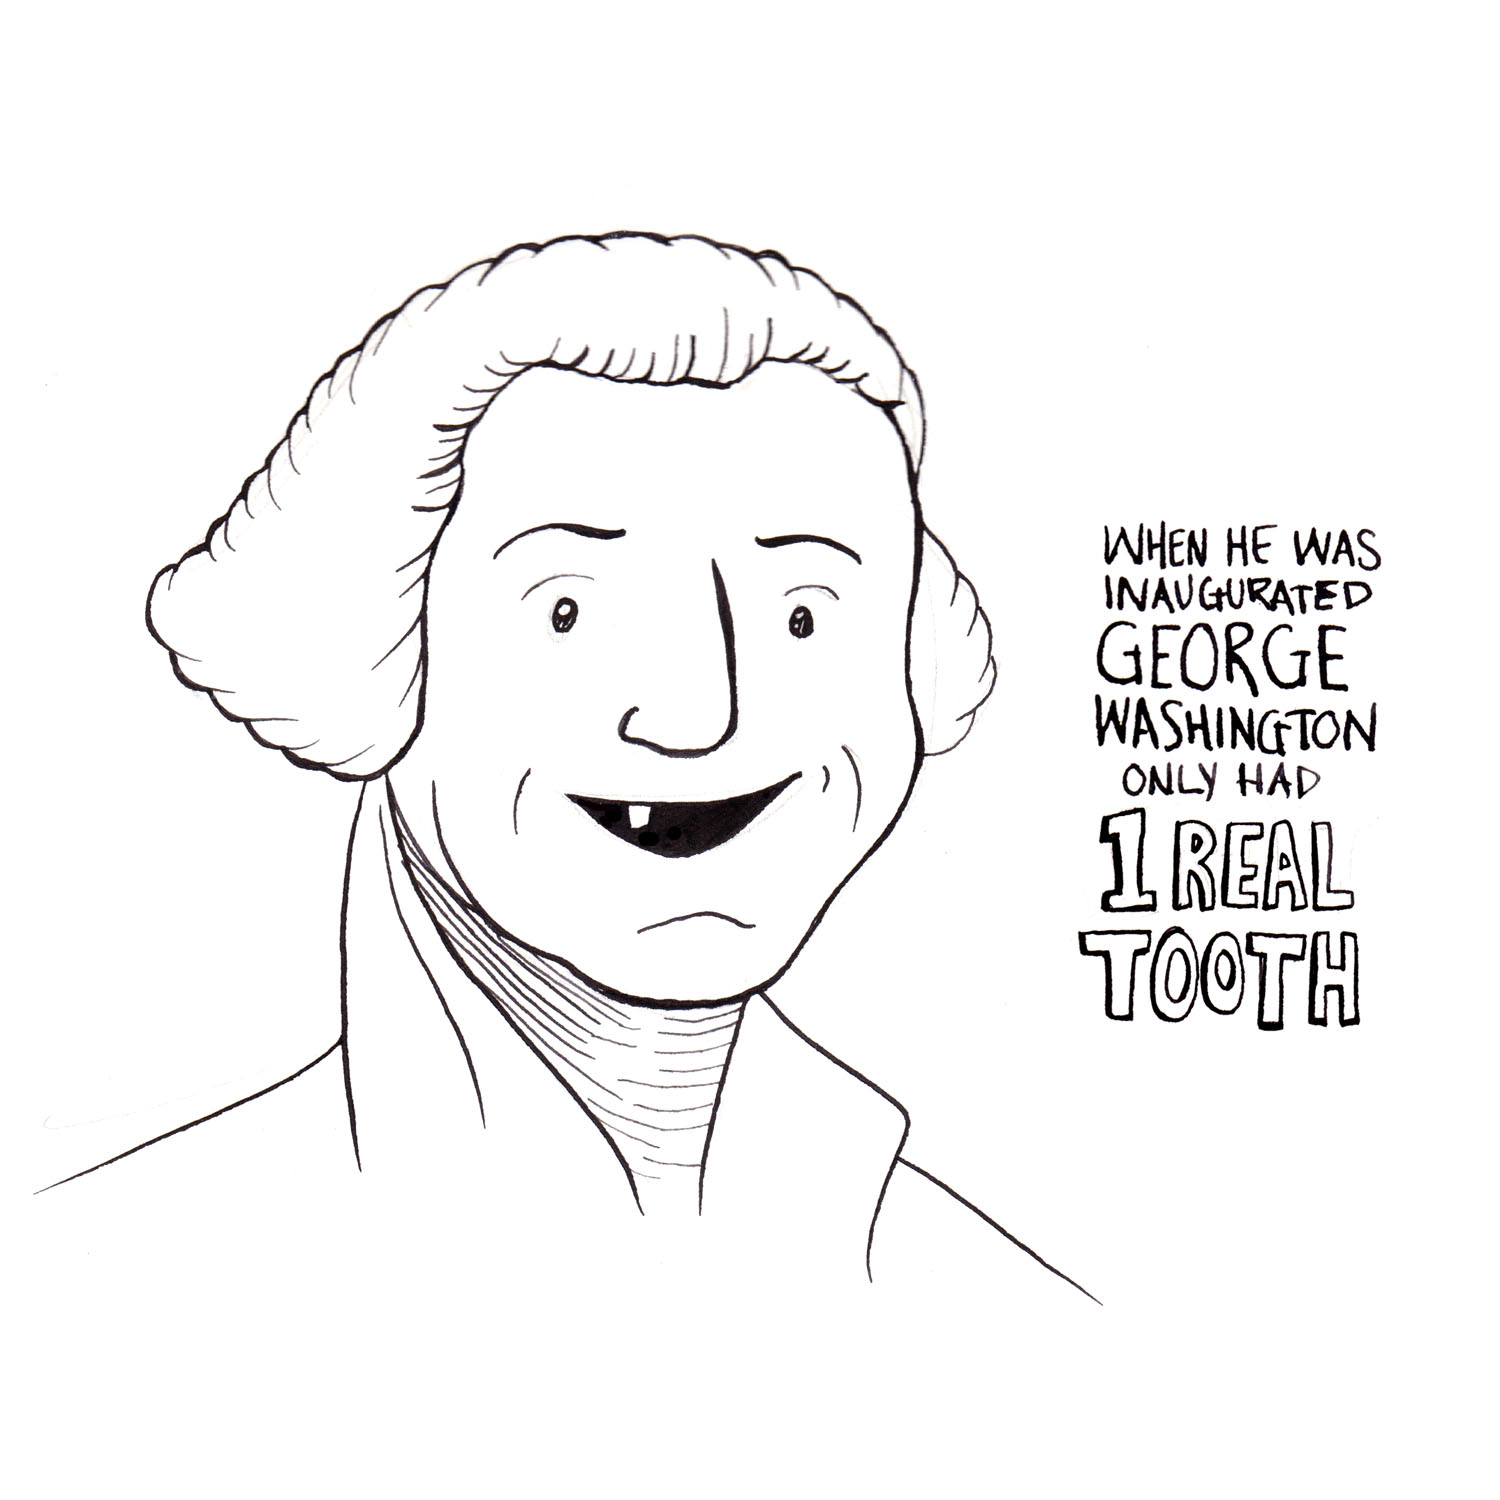 WHEN HE WAS
INAUGURATED
GEORGE
WASHINGTON
ONLY HAD
1 REAL
TOOTH